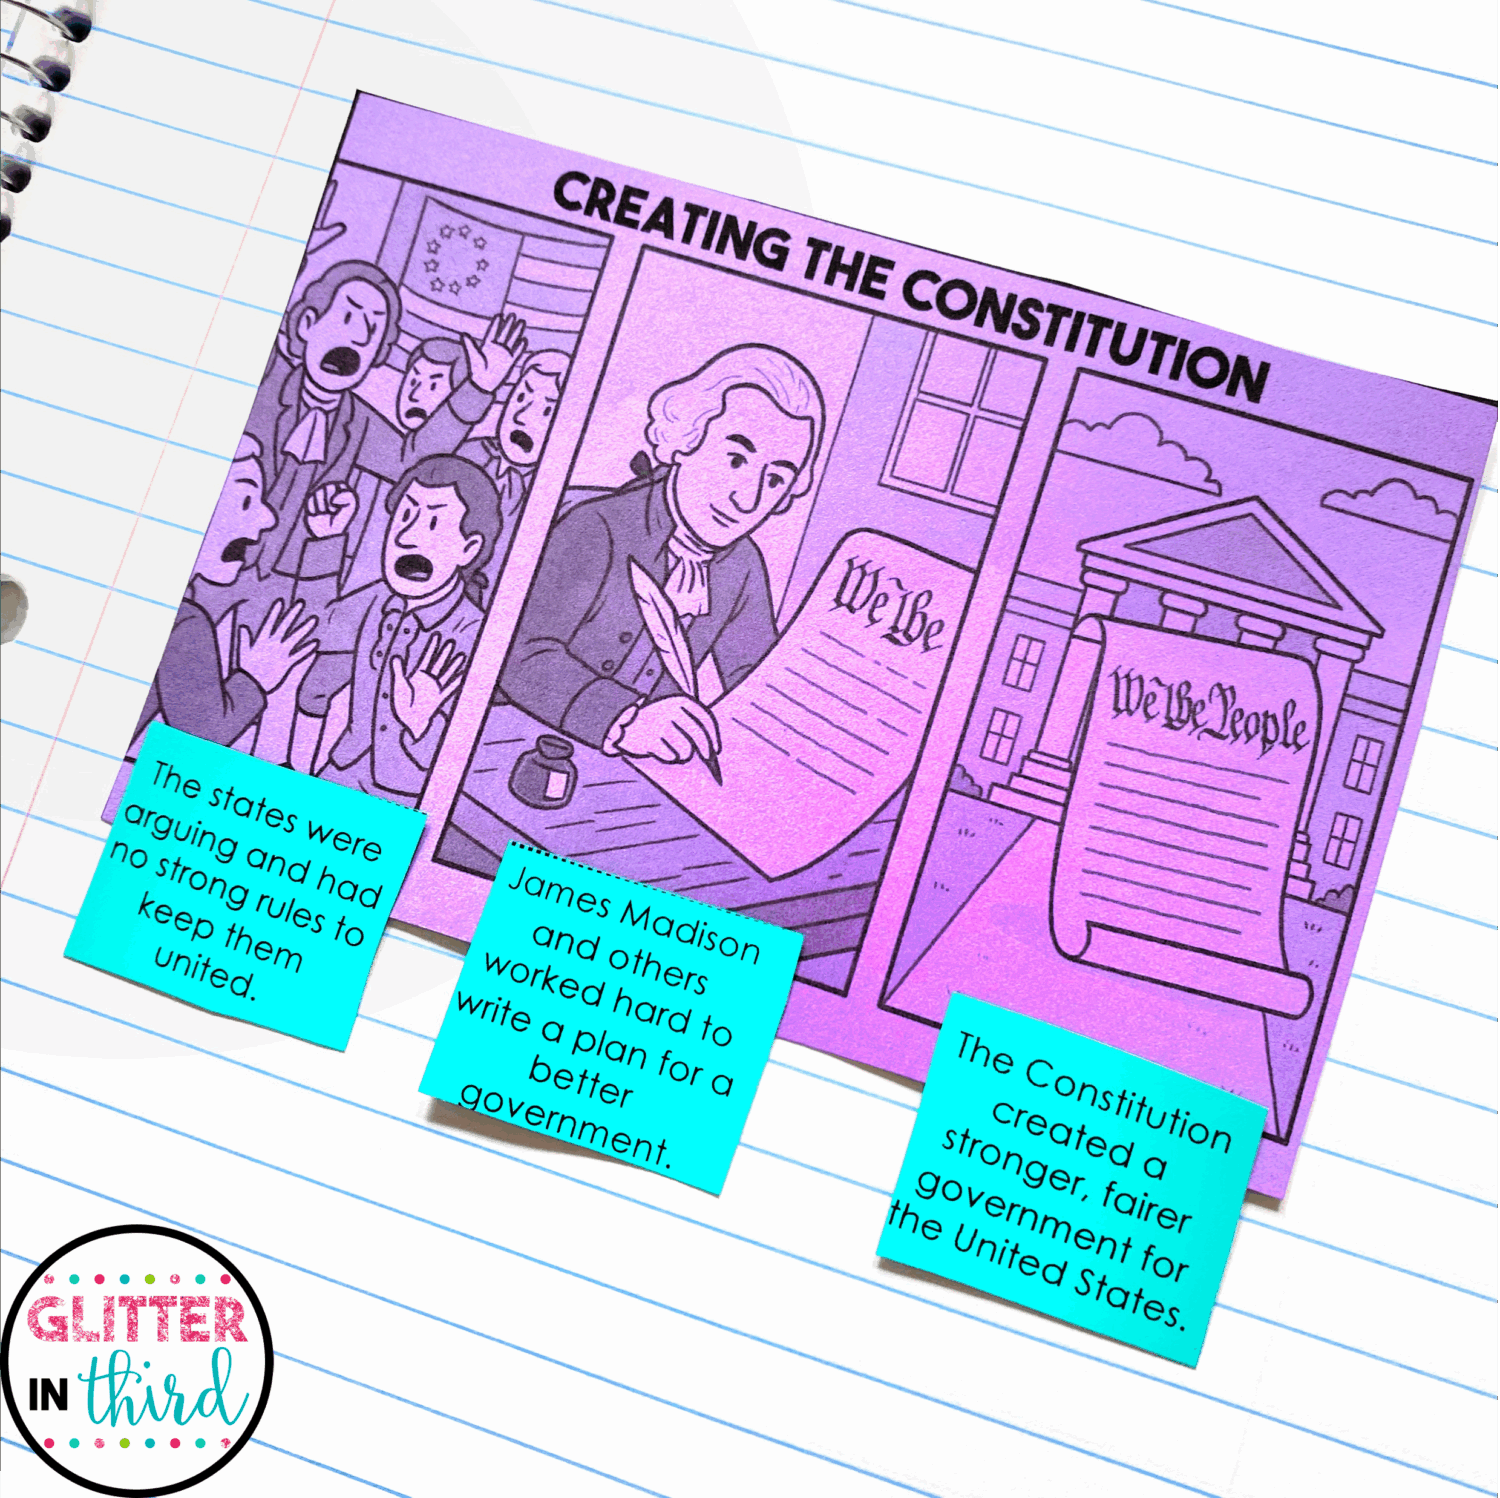 CREATING THE CONSTITUTION
We the
We the People
The states were
arguing and had
no strong rules to
keep them
united.
James Madison
and others
worked hard to
write a plan for a
better
government.
The Constitution
created a
stronger, fairer
government for
the United States.
GLITTER
IN third